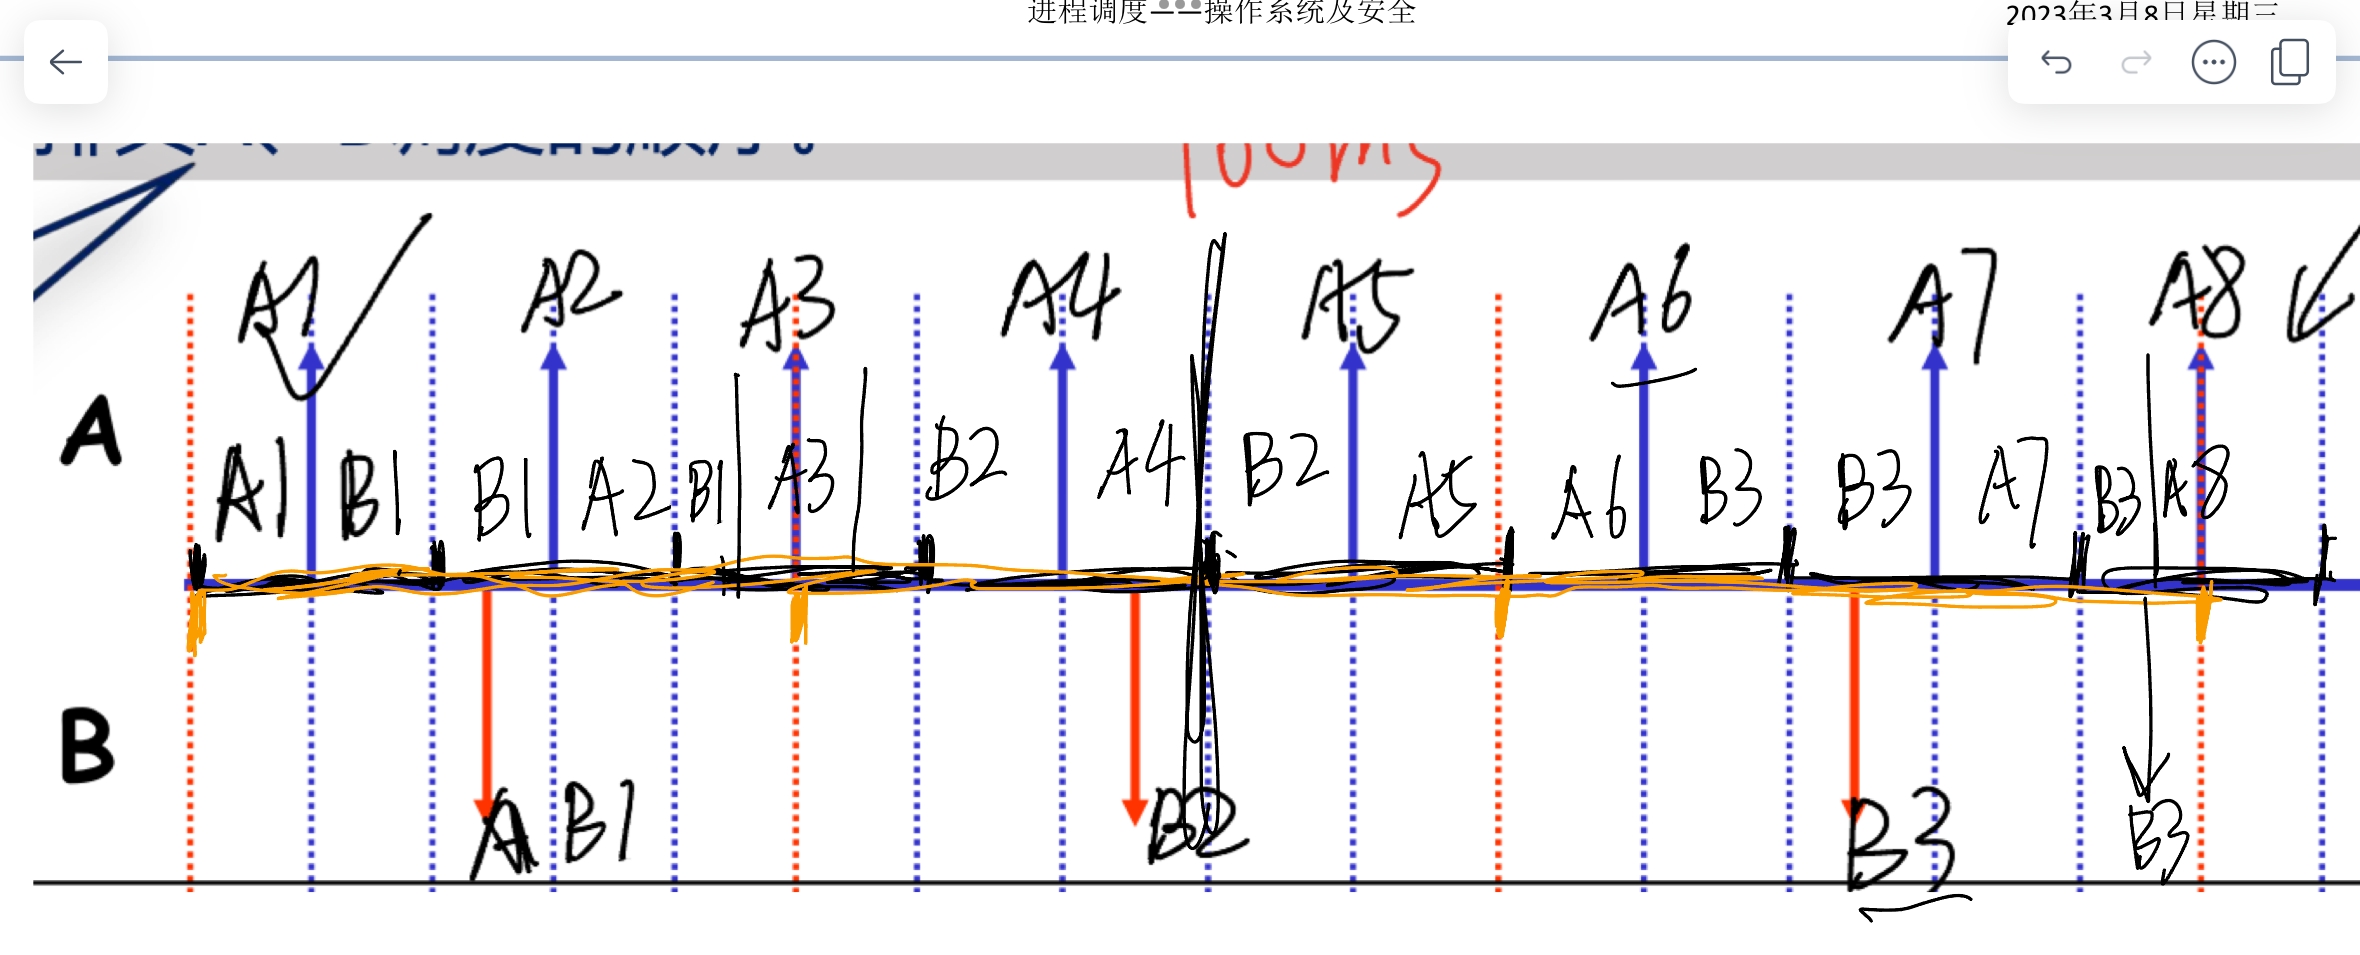 进程调度——操作系统及安全
2023年3月8日星期三
100ms
A1 A2 A3 A4 A5 A6 A7 A8
A
A1 B1 B1 A2 B1 A3 B2 A4 B2 A5 A6 B3 B3 A7 B3 A8
B
A B1 B2 B3 B3